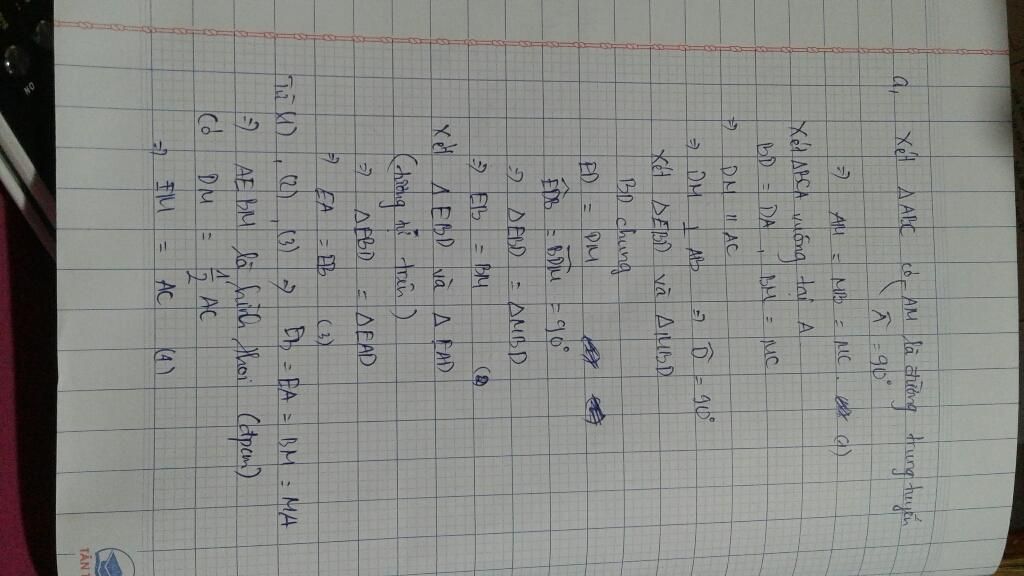 a, Xét ΔABC có AM là đường trung tuyến
Â = 90°
⇒ AM = MB = MC. (1)
Xét ΔBCA vuông tại A
BD = DA, BM = MC
⇒ DM // AC
⇒ DM ⊥ AB ⇒ D̂ = 90°
Xét ΔEBD và ΔMBD
BD chung
ED = DM
EDB = BDM = 90°
⇒ ΔEBD = ΔMBD
⇒ EB = BM (2)
Xét ΔEBD và ΔEAD
(chứng tỏ trên)
⇒ ΔEBD = ΔEAD
⇒ EA = EB (3)
Từ (1), (2), (3) ⇒ EB = EA = BM = MA
⇒ AEBM là hình thoi (đpcm)
Có DM = 1/2 AC
⇒ EM = AC (4)
TÂN T
NO